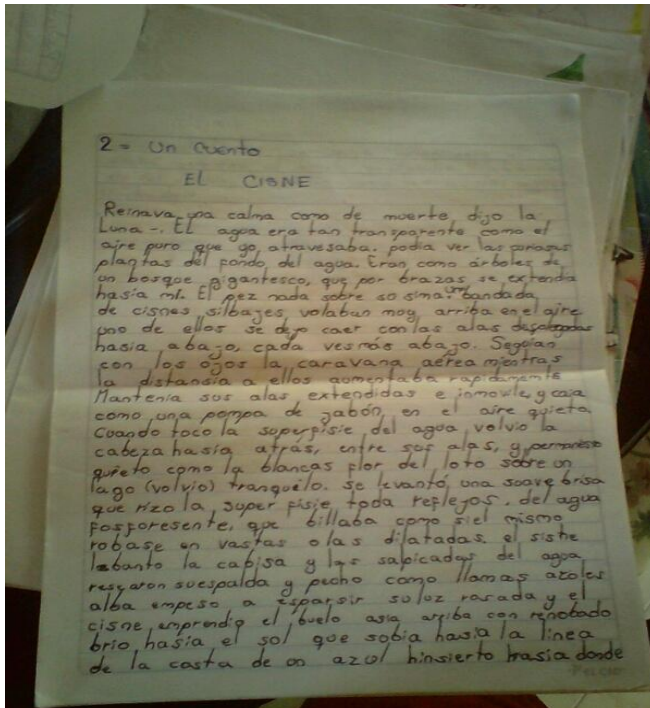 2 = Un Cuento
EL CISNE
Reinava una calma como de muerte, dijo la
Luna -. EL agua era tan transparente como el
aire puro que yo, atravesaba. podia ver las curiosas
plantas del fondo, del agua. Eran como árboles de
un bosque gigantesco, que por brazas se extendia
hasia mi. El pez nada sobre so sima. una bandada
de cisnes silbajes, volaban moy arriba en el aire
uno de ellos se dejo caer con las alas desplegadas
hasia abajo, cada ves más abajo. Seguian
con los ojos la caravana aérea mientras
la distansia a ellos aumentaba rapidamente
Mantenia sus alas extendidas e inmovile, y caia
como una pompa de jabón, en el aire quieta
Cuando toco la superfisie del agua, volvio la
cabeza hasia atrás, entre sus alas, y permanesio
quieto como la blancas flor del loto sobre un
lago (volvio) tranquilo. se levantó una soave brisa
que rizo la super fisie toda reflejos. del agua
fosforesente, que billaba como si el mismo
robase en vastas olas dilatadas. el sisne
lebanto la cabisa y las salpicadas del agua
resgaron su espalda y pecho como llamas azoles
alba empeso a esparsir su loz rasada y el
cisne, emprendio el buelo asia arriba con renobado
brio, hasia el sol que sobia hasia la linea
de la casta de un azul hinsierto hasia donde